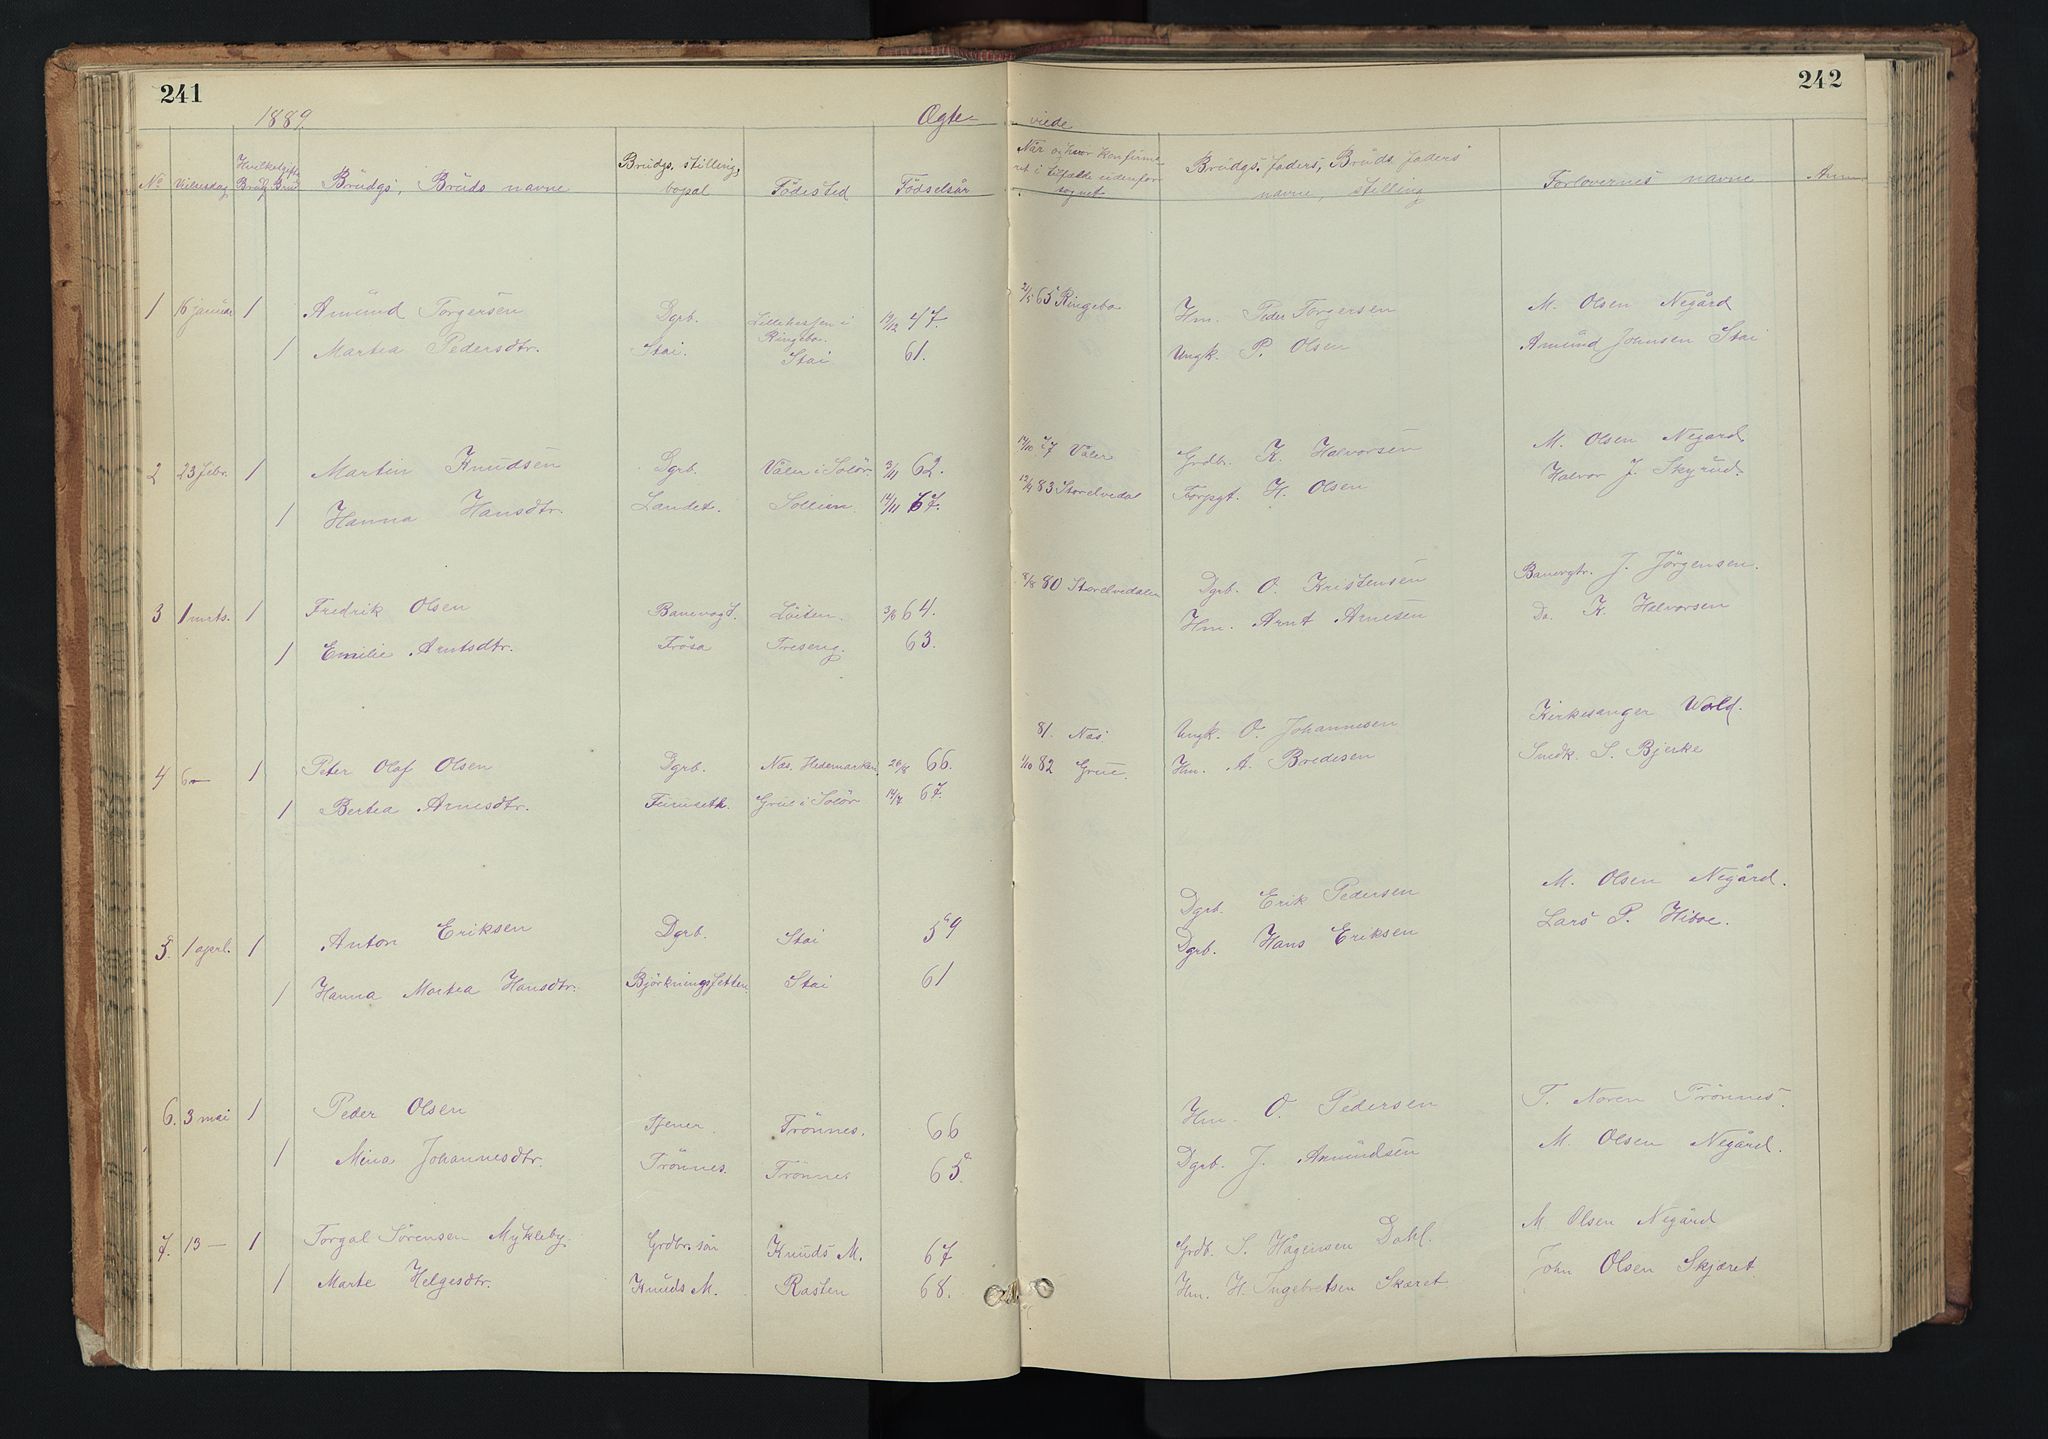 241
242
1889.
Ægte-
viede
No
Vielsesdag
Hvilketgifte
Brdg Brud
Brudgs, Bruds navne
Brudgs. stilling,
bopæl
Födested
Födselsår
Når og hvor konfirme-
ret i tilfælde udenfor
sognet
Brudgs. faders, Bruds. faders
navne, stilling
Forlovernes navne
Anm
1 16 januar 1 Amund Torgersen Dgrb. i 19/12 47 2/5 65 Ringebo Hm. Peder Torgersen M. Olsen Negård
Ringebo.
1 Martea Pedersdtr. Stai. Stai 61. Ungk. P. Olsen Amund Johnsen Stai
2 23 febr. 1 Martin Knudsen Dgrb. Våler i Solör 3/11 62. 77 Våler Grdbr. K. Halvorsen M. Olsen Negård
1 Hanna Hansdtr. Landet. Sollien. 14/11 67. 83 Storelvedal Forpgt. H. Olsen Halvor J. Skyrud.
3 1 mrts. 1 Fredrik Olsen Banevogt. Löiten. 3/8 64. 8/8 80 Storelvedalen Dgrb. O. Kristensen Banevgtr. J. Jörgensen.
1 Emilie Arntsdtr. Frösa Treseng. 63. Hm. Arnt Arnesen Do. K. Halvorsen
4 6 — 1 Peter Olaf Olsen Dgrb. Næs. Hedemarken 26/8 66. 81. Næs Ungk. O. Johannesen Kirkesanger Wold.
1 Bertea Arnesdtr. Furuseth. Grue i Solör 14/7 67. 1/10 82 Grue. Hm. A. Bredesen Smdk. S. Bjerke
5. 1 aprl. 1 Anton Eriksen Dgrb. Stai 59 Dgrb. Erik Pedersen M. Olsen Negård.
1 Hanna Martea Hansdtr. Björkningssetten Stai 61 Dgrb. Hans Eriksen Lars P. Hiroe.
6. 3 mai 1 Peder Olsen Trönnes. 66 Hm. O. Pedersen T. Noren Trönnes.
1 Mina Johannesdtr. Trönnes. Trönnes 65. Dgrb. J. Amundsen M. Olsen Negård.
7. 13 — 1 Torgal Sörensen Mykleby Grdbr. sön Knuds M. 67 Grdb. S. Hågensen Dahl. M. Olsen Negård
1 Marte Helgesdtr. Knuds M. Rasten 68. Hm. H. Ingebretsen Skæret John Olsen Skjæret